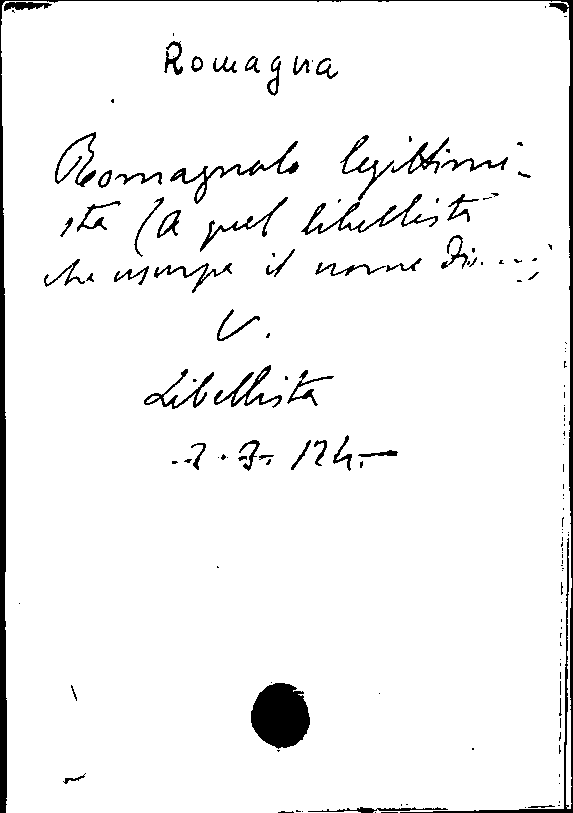 Romagna
Romagnolo legittimi-
sta (A quel libellista
che usurpa il nome di....)
V.
Libellista
.7.7.124.